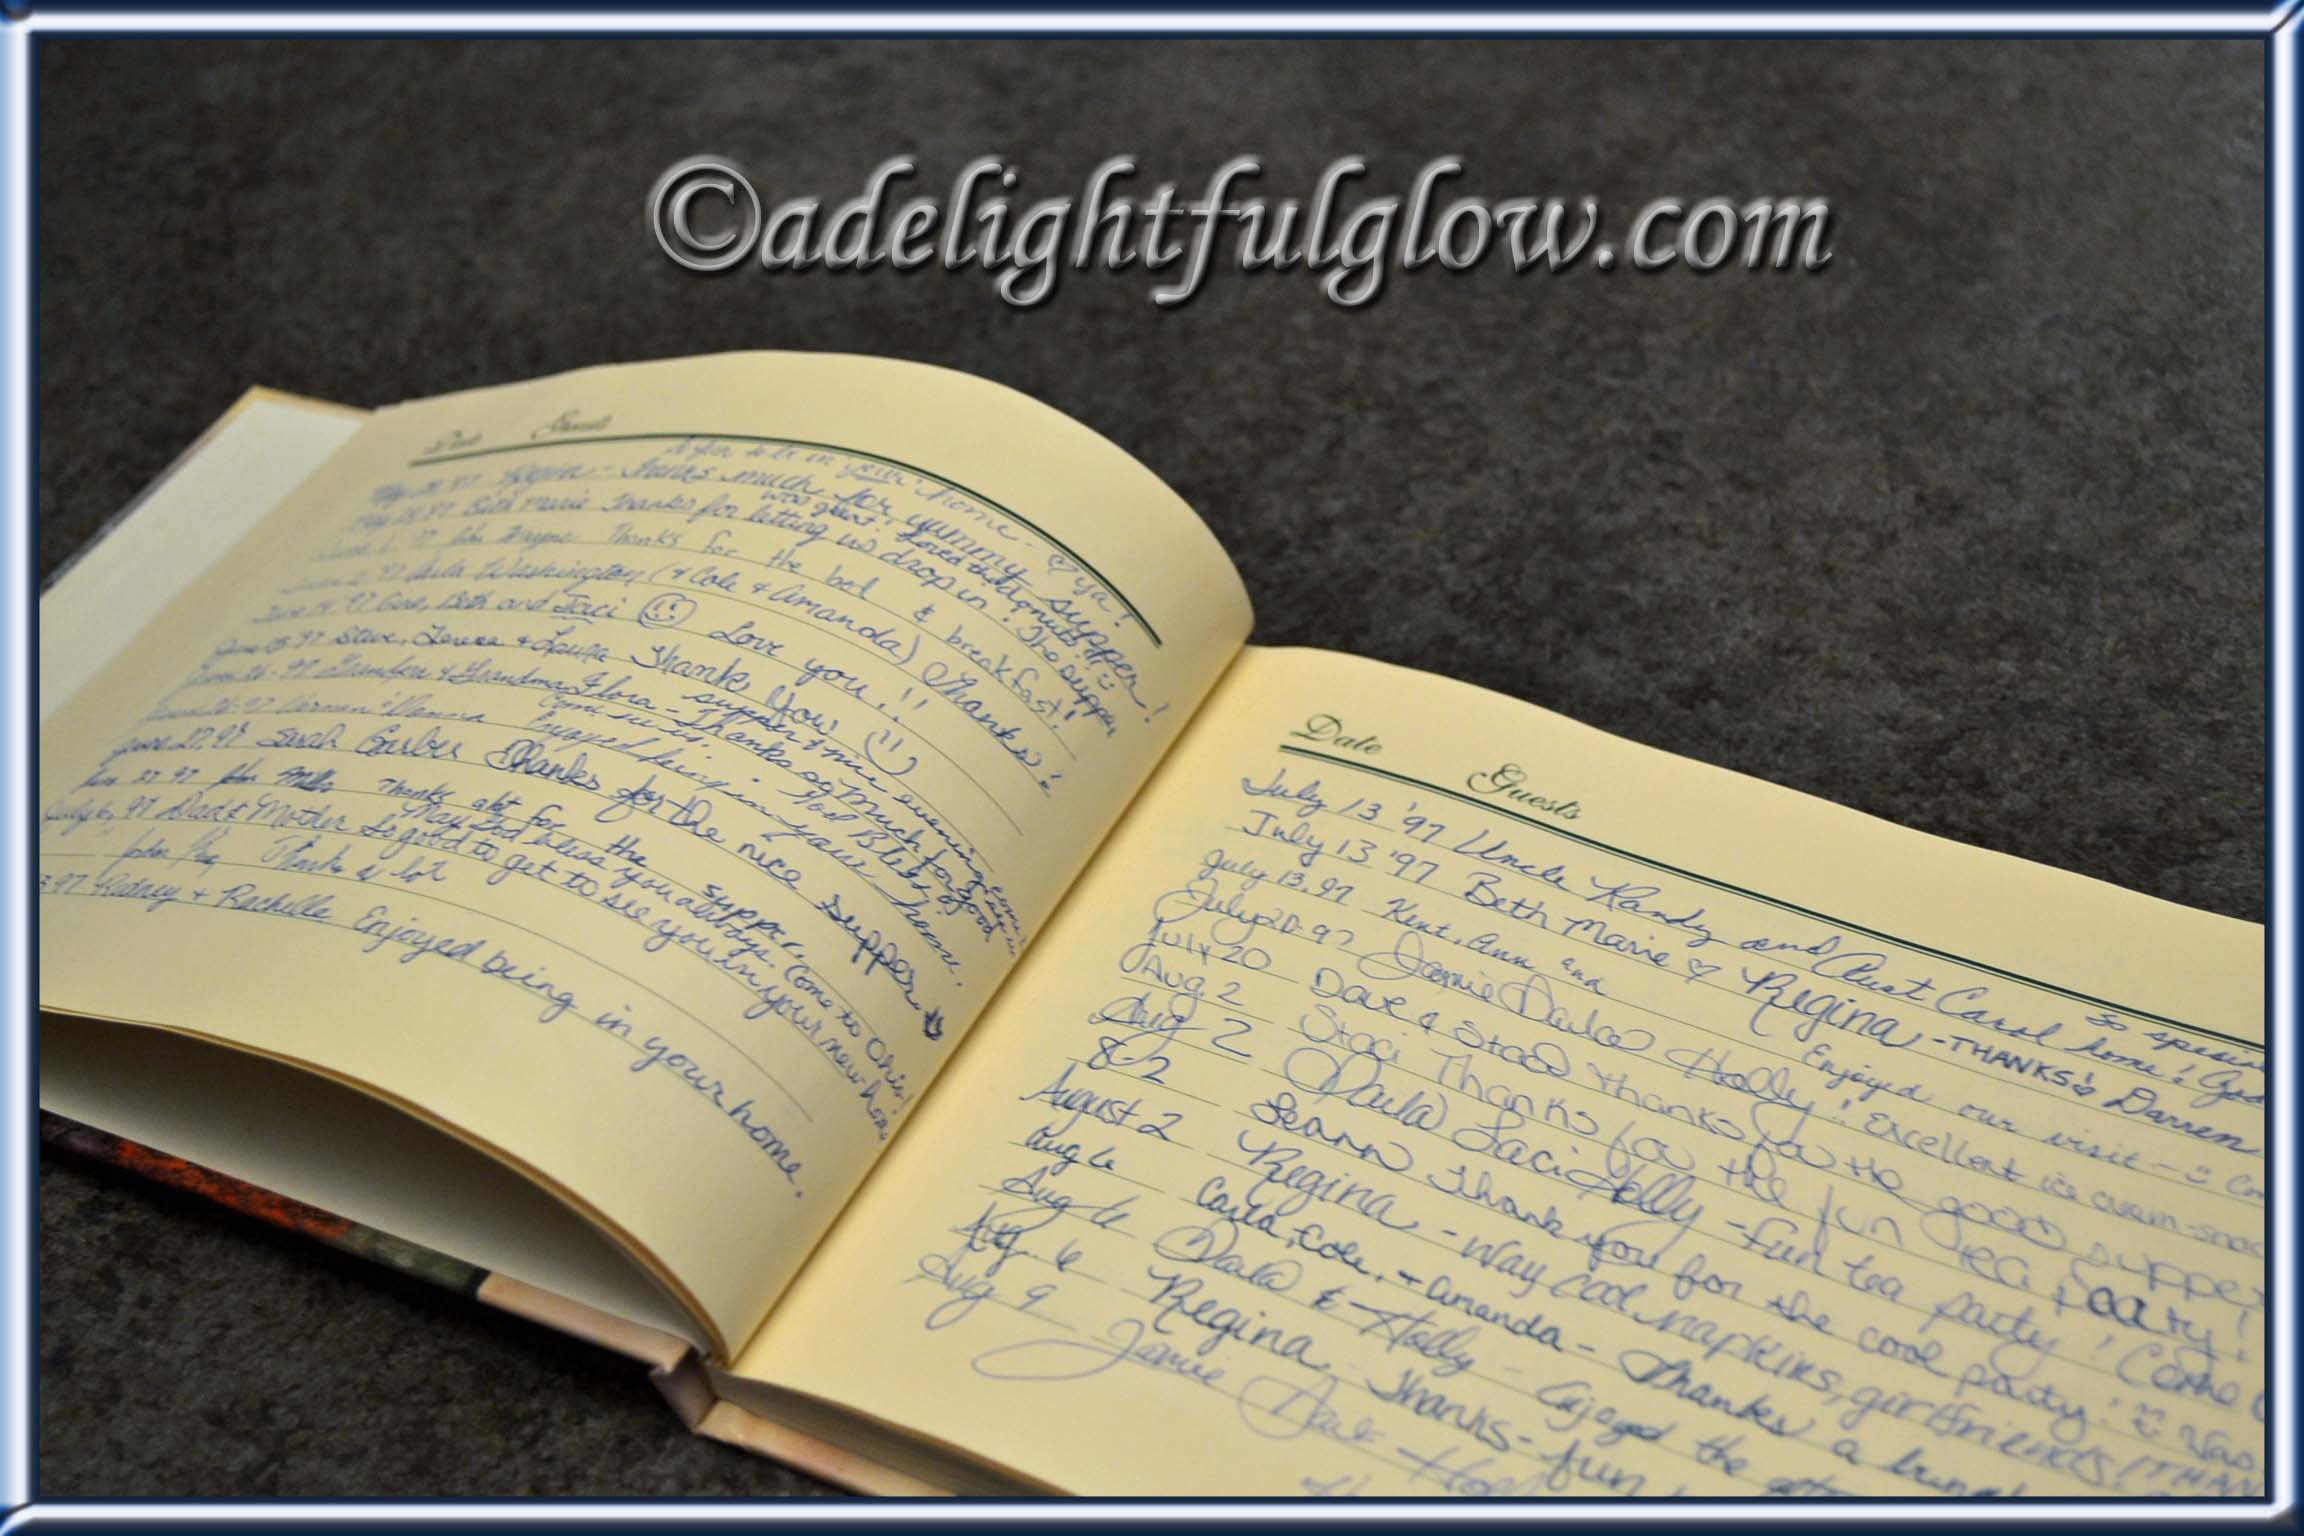 ©adelightfulglow.com
Date Guests
to be in your home - ♡ ya!
Regina - Thanks much for yummy supper!
was great! Loved that
Beth Marie Thanks for letting us drop in! The supper
June 1, 97 John Wayne Thanks for the bed & breakfast!
June 2, 97 Carla Washington (& Cole & Amanda) Thanks!
June 14, 97 Gene, Beth and Jaci ☺ Love you!!
97 Steve, Teresa & Laura Thank You ☺
supper & nice evening
June 26-97 Grandpa & Grandma Flora - Thanks so much for good
Come see us. God Bless
June 26-97 Vernon Enjoyed being in your home.
June 27, 97 Sarah Garber Thanks for the nice supper
June 27 97 John Mills Thanks alot for the supper.
May God bless you always. Come to Ohio!
July 6, 97 Dad & Mother So good to get to see you in your new home
John Thanks a lot
3-97 Rodney & Rachelle Enjoyed being in your home.
Date Guests
So special
July 13 '97 Uncle Randy and Aunt Carol home! God
July 13 '97 Beth Marie ♡ Regina - THANKS! Darren
July 13, 97 Kent, Ann and Enjoyed our visit - ☺ Com
July 20-97 Jamie Holly! Excellent ice cream - snac
July 20 Dave & Staci Thanks for the good supper!
Aug. 2 Staci Thanks for the fun tea party!
Aug 2 Laci Holly - Fun tea party! Come
8-2 Thank you for the cool party! ☺ Was
August 2 Regina - Way cool napkins, girlfriends! THAN
Aug 6 Carla, Cole, + Amanda - Thanks a bunch
Aug 6 & Holly - Enjoyed the
Aug. 6 Regina - Thanks - fun
Aug 9 Jamie